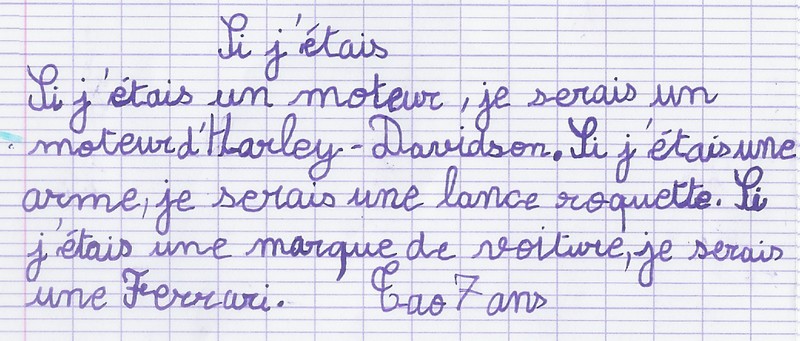 Si j'étais
Si j'étais un moteur, je serais un
moteur d'Harley-Davidson. Si j'étais une
arme, je serais une lance roquette. Si
j'étais une marque de voiture, je serais
une Ferrari. Tao 7 ans